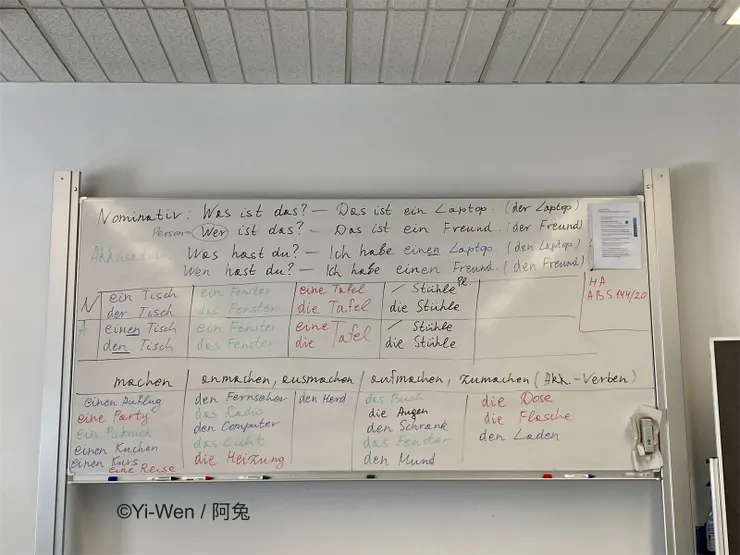 Nominativ: Was ist das? – Das ist ein Laptop. (der Laptop)
Person Wer ist das? – Das ist ein Freund. (der Freund)
Akkusativ: Was hast du? – Ich habe einen Laptop. (den Laptop)
Wen hast du? – Ich habe einen Freund. (den Freund)
HA
AB S.144/20
Pl.
N ein Tisch ein Fenster eine Tafel / Stühle
der Tisch das Fenster die Tafel die Stühle
A einen Tisch ein Fenster eine Tafel / Stühle
den Tisch das Fenster die die Stühle
machen anmachen, ausmachen aufmachen, zumachen (Akk.-Verben)
einen Ausflug den Fernseher den Herd das Buch die Dose
eine Party das Radio die Augen die Flasche
ein Picknick den Computer den Schrank den Laden
einen Kuchen das Licht das Fenster
einen Kurs die Heizung den Mund
eine Reise
©Yi-Wen / 阿兔